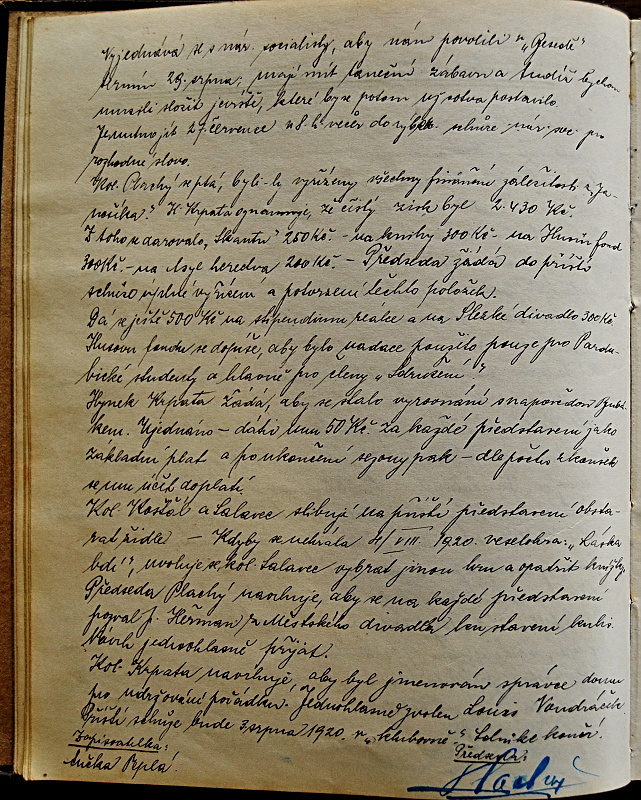 Vyjednává se s nár. socialisty, aby nám povolili v „Besedě"
termín 29. srpna; mají mít taneční zábavu a tudíž bychom
museli složit jeviště, které by se potom už sotva postavilo.
Je nutno jít 27 července v 8. h. večer do schůze nár. soc. pro
rozhodné slovo.
Kol. Plachý se ptá, byli-li vyřízeny všechny finanční záležitosti z „Ja-
nošíka." H. Krpata oznamuje, že čistý zisk byl 2.430 Kč.
Z toho se darovalo, „Skautu" 250 Kč. - na knihy 300 Kč. - na Husův fond
300 Kč. - na 200 Kč. - Předseda žádá do příští
schůze vyřízení a potvrzení těchto položek.
Dá se ještě 500 Kč na stipendium realce a na Slezké divadlo 300 Kč
Husovu fondu se dopíše, aby bylo nadace použito pouze pro Pardu-
bické studenty a hlavně pro členy „Sdružení".
Hynek Krpata žádá, aby se stalo vyrovnání s napovědou
kem. Ujednáno - dáti mu 50 Kč. za každé představení jako
základní plat a po ukončení sezony pak - dle počtu zkoušek
se mu účet doplatí.
Kol. Košťál a Salavec slibují na příští představení obsta-
rat židle - Kdyby se nehrála 4/VIII. 1920. veselohra: „Láska
bdí", uvoluje se kol. Salavec vybrat jinou hru a opatřit knížky.
Předseda Plachý navrhuje, aby se na každé představení
pozval p. Heřman z Městského divadla ku stavení kulis.
Návrh jednohlasně přijat.
Kol. Krpata navrhuje, aby byl jmenován správce domu
pro udržování pořádku. Jednohlasně zvolen Louis Vondráček.
Příští schůze bude 3 srpna 1920. v „klubovně" Solnike končí.
Zapisovatelka:
Předseda:
Plachý